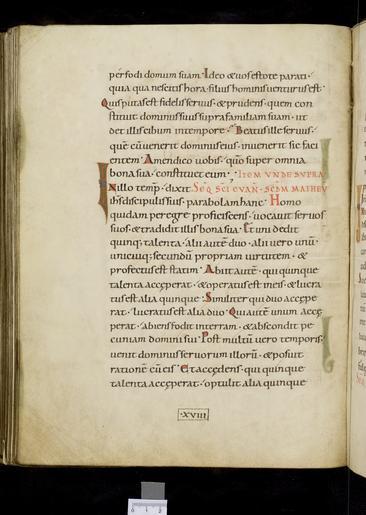 perfodi domum suam. Ideo & uos estote parati.
quia qua nescitis hora. filius hominis uenturus est.
Quis putas est fidelis seruus. & prudens. quem con
stituit dominus suus supra familiam suam. ut
det illis cibum in tempore. Beatus ille seruus.
quē cū uenerit dominus eius. inuenerit sic faci
entem. Amen dico uobis. quō super omnia
bona sua. constituet eum. ITEM UNDE SUPRA
IN illo temp. dixit. SEQ SCI EUAN. SCDM MATHEU
ihs discipulis suis. parabolam hanc. Homo
quidam peregre proficiscens. uocauit seruos
suos. & tradidit illis bona sua. Et uni dedit
quinq; talenta. alii autē duo. alii uero unū.
unicuiq; secundū propriam uirtutem. &
profectus est statim. Abiit autē. qui quinque
talenta accęperat. & operatus est in eis. & lucra
tus est alia quinque. Similiter qui duo accępe
rat. lucratus est alia duo. Qui autē unum accę
perat. abiens fodit in terram. & abscondit pe
cuniam domini sui. Post multū uero temporis.
uenit dominus seruorum illorū. & posuit
rationē cū eis. Et accędens. qui quinque
talenta accęperat. optulit alia quinque
.XVIII.